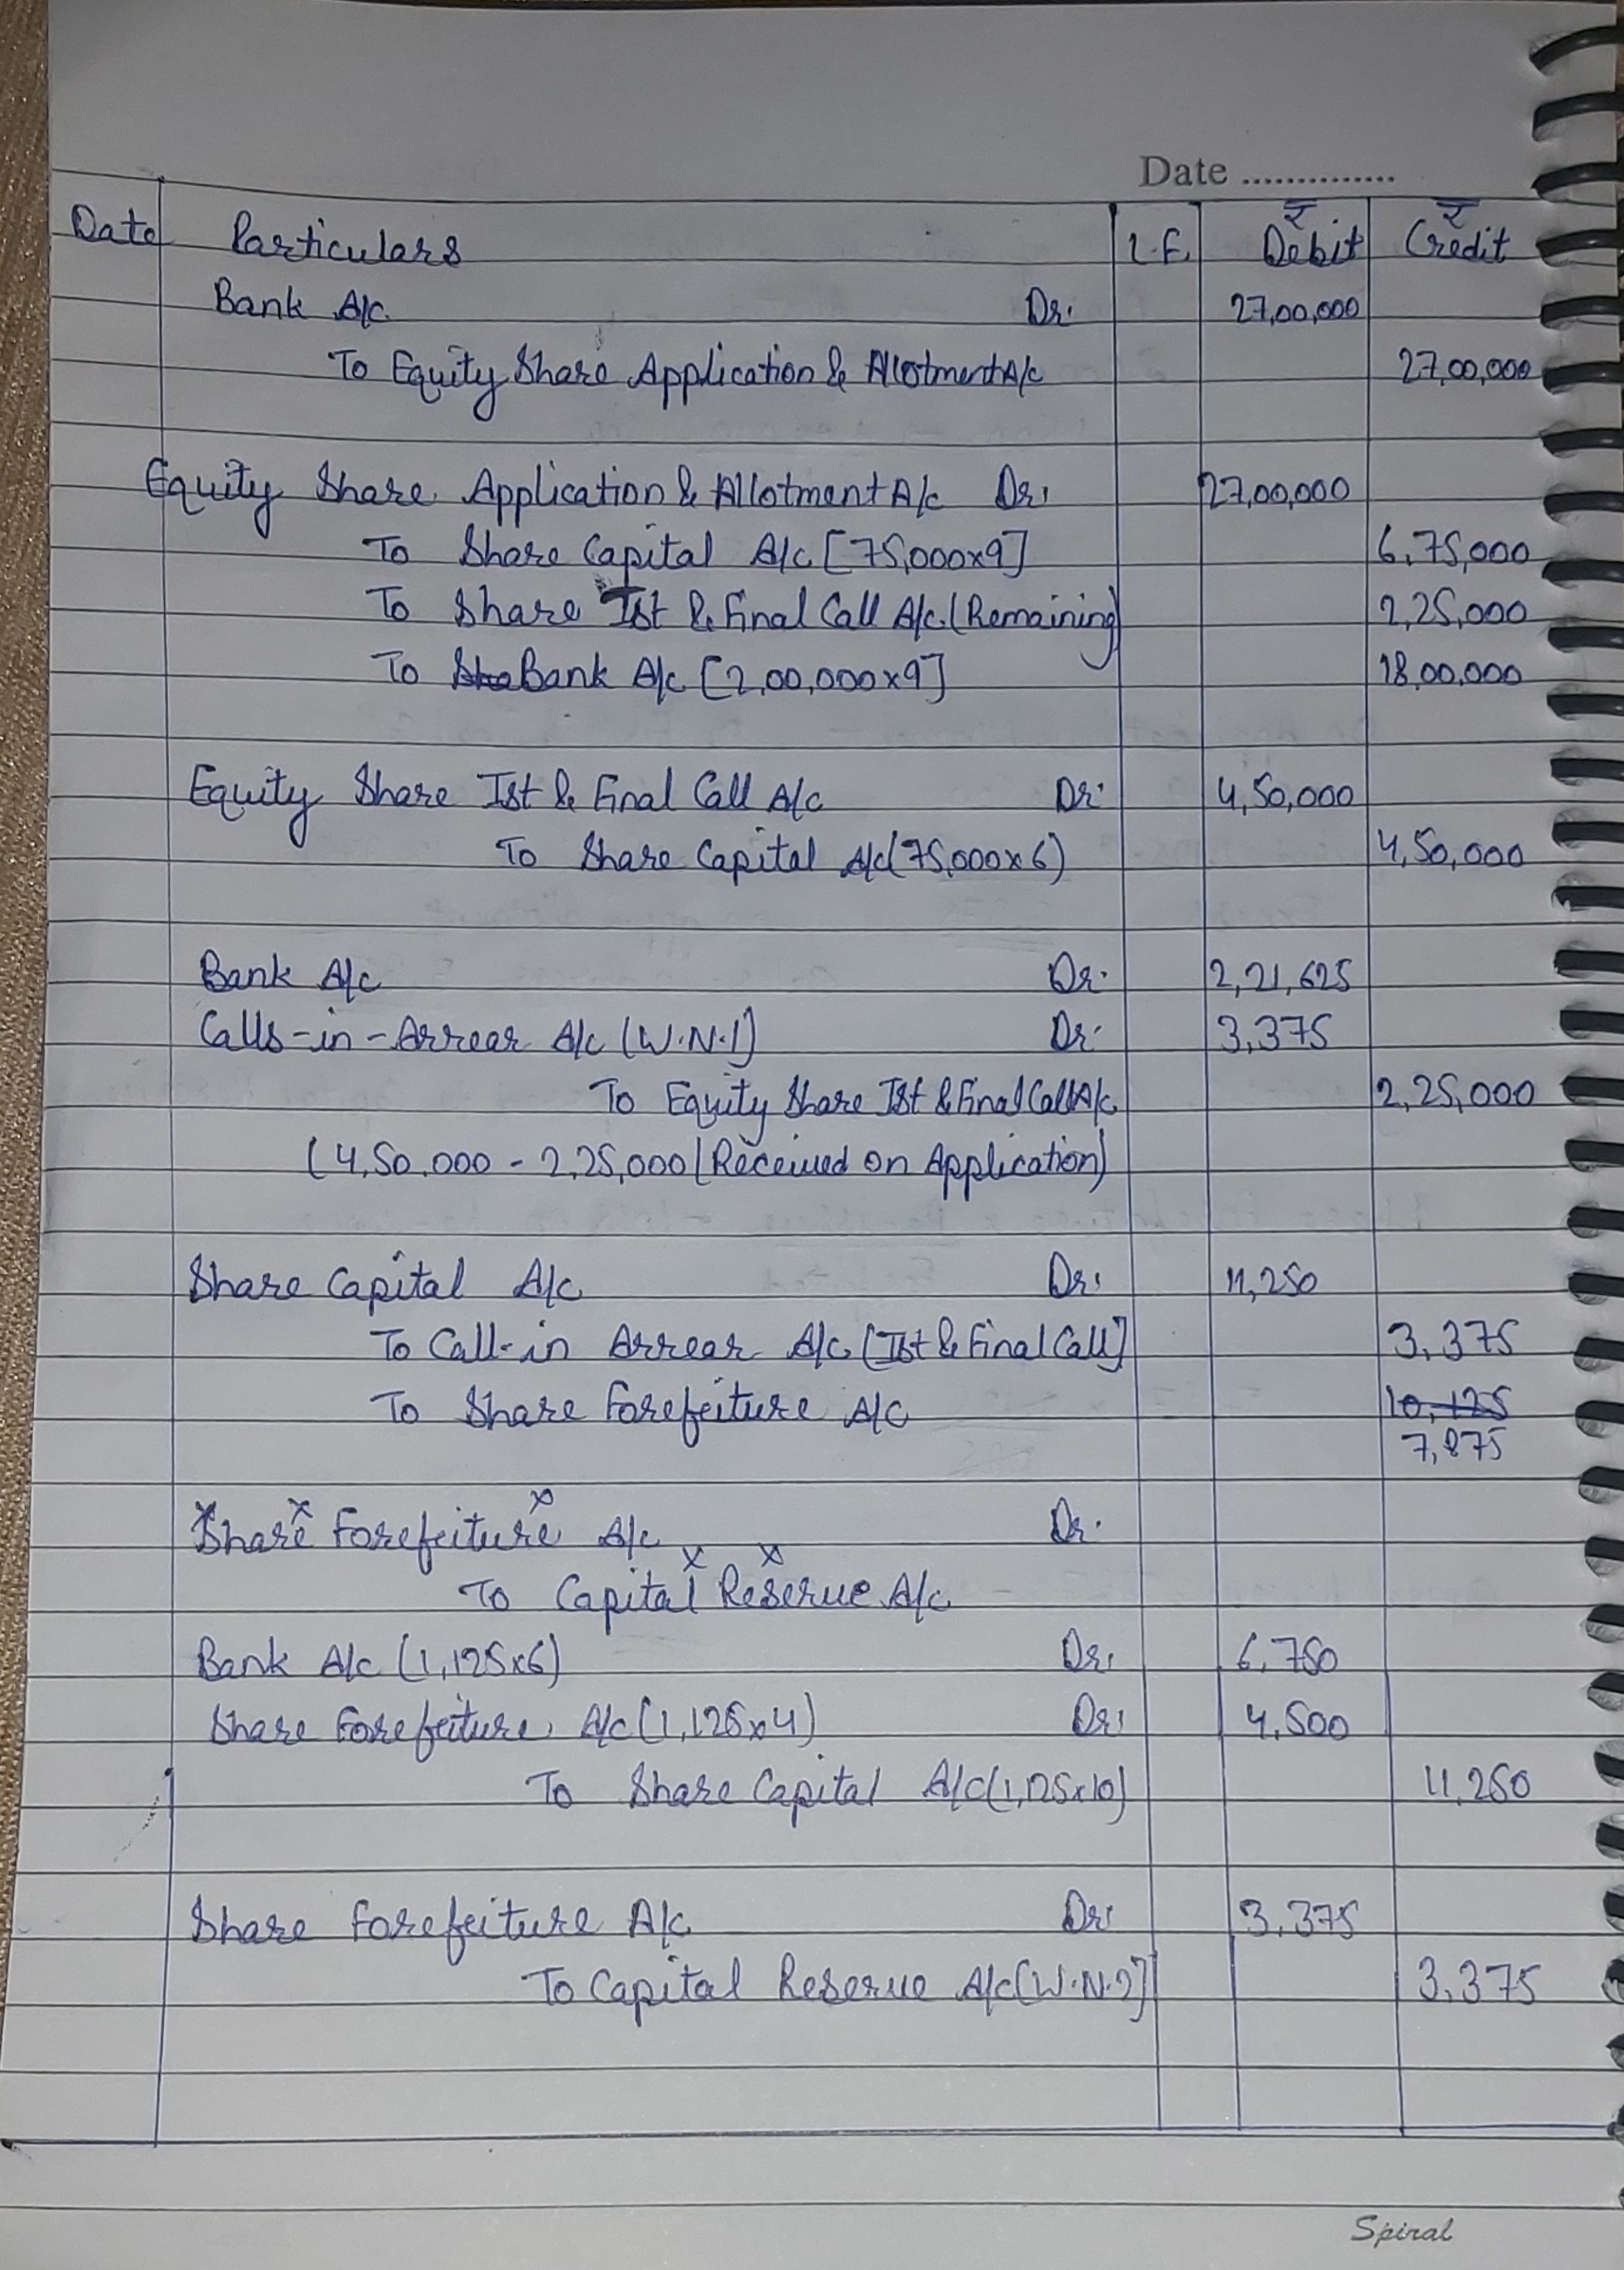 Date ..............
Date Particulars L.F. ₹ Debit ₹ Credit
Bank A/c. Dr. 27,00,000
To Equity Share Application & Allotment A/c 27,00,000
Equity Share Application & Allotment A/c Dr. 27,00,000
To Share Capital A/c [75,000x9] 6,75,000
To Share Ist & Final Call A/c. (Remaining) 2,25,000
To Bank A/c [2,00,000x9] 18,00,000
Equity Share Ist & Final Call A/c Dr. 4,50,000
To Share Capital A/c (75,000x6) 4,50,000
Bank A/c Dr. 2,21,625
Calls-in-Arrear A/c (W.N.1) Dr. 3,375
To Equity Share Ist & Final Call A/c. 2,25,000
(4,50,000 - 2,25,000 (Received on Application)
Share Capital A/c Dr. 11,250
To Call-in Arrear A/c [Ist & Final Call] 3,375
To Share Forefeiture A/c 10,125
7,875
Share Forefeiture A/c Dr.
To Capital Reserve A/c.
Bank A/c (1,125x6) Dr. 6,750
Share Forefeiture A/c (1,125x4) Dr. 4,500
To Share Capital A/c (1,125x10) 11,250
Share Forefeiture A/c Dr. 3,375
To Capital Reserve A/c [W.N.2] 3,375
Spiral